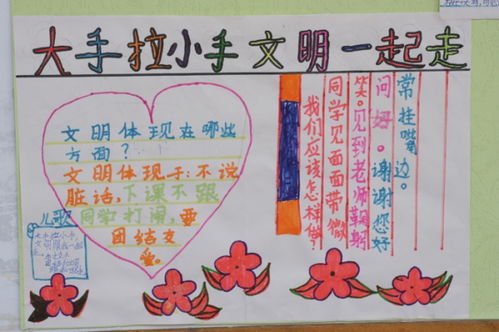 大手拉小手文明一起走
文明体现在哪些
方面?
文明体现于:不说
脏话,下课不跟
同学打闹,要
团结友
爱。
儿歌
大手拉小手
我们应该怎样做?
同学见面面带微
笑。见到老师鞠躬
问好。谢谢您好
常挂嘴边。